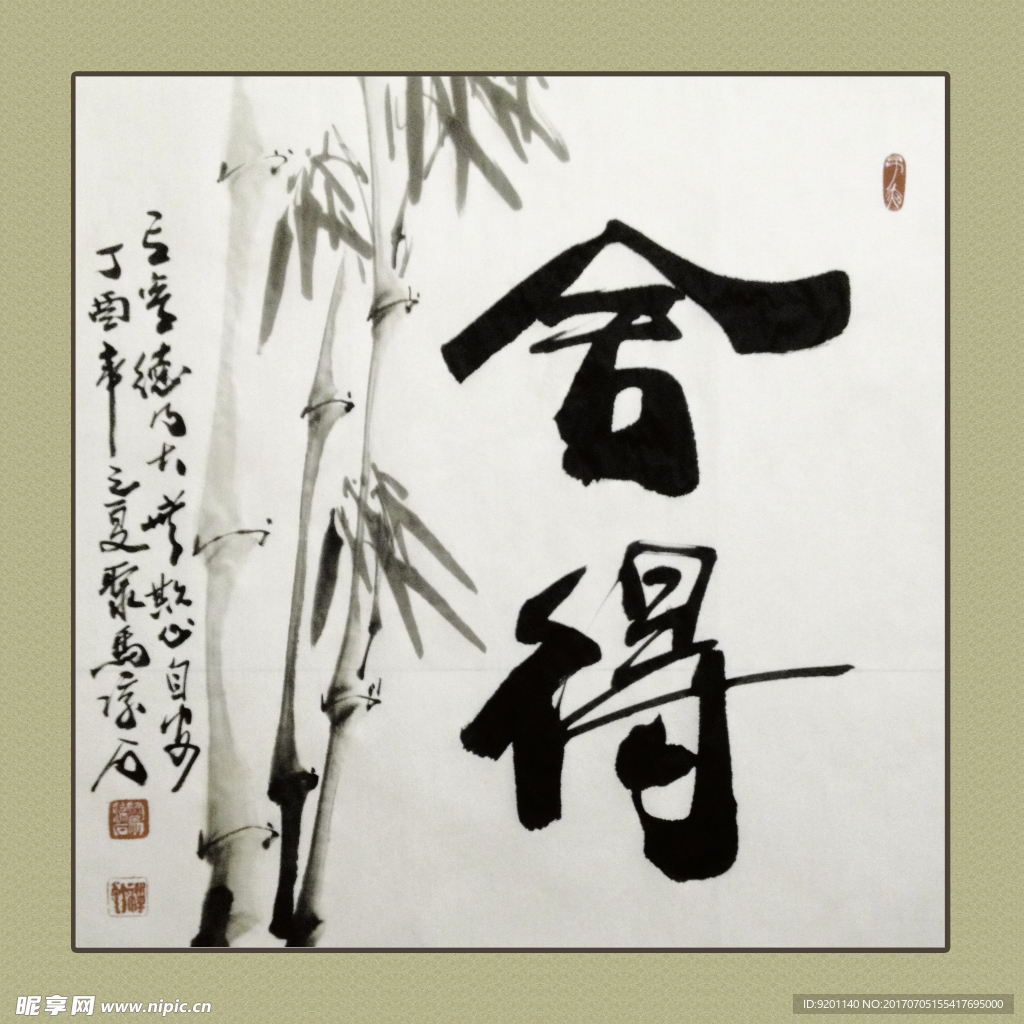 舍得
忘掌德乃大无欺心自安
丁酉年之夏聚馬谅石
昵享网 www.nipic.cn
ID:9201140 NO:20170705155417695000